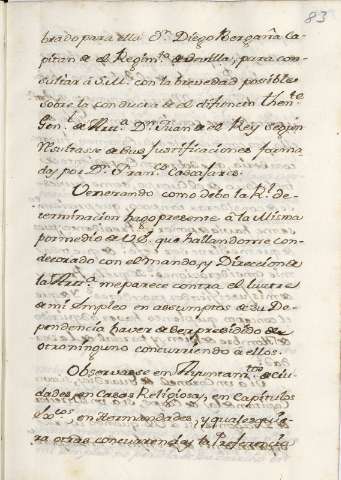 83
brado para ella Dn. Diego Bergaña Ca-
pitan de el Regimto. de Sevilla, para con-
sultar à S.M. con la brevedad posible
sobre la conducta de el difunto thente.
Genl. de Arta. Dn. Juan de el Rey segun
Resultase de sus Justificaciones forma-
das por Dn. Franco.
Venerando como debo la Rl. de-
terminacion hago presente à la Misma
por medio de V.E. que hallandome con-
decorado con el mando, y Direccion de
la Arta. me parece contra el lustre
de mi Empleo en assumptos de su De-
pendencia haver de ser presidido de
otro ninguno concurriendo à ellos.
Observase en Ayuntamtos. de ciu-
dades, en Casas Religiosas, en Capitulos
en Hermandades, y qualesquie-
ra otras concurrencias la Preferencia